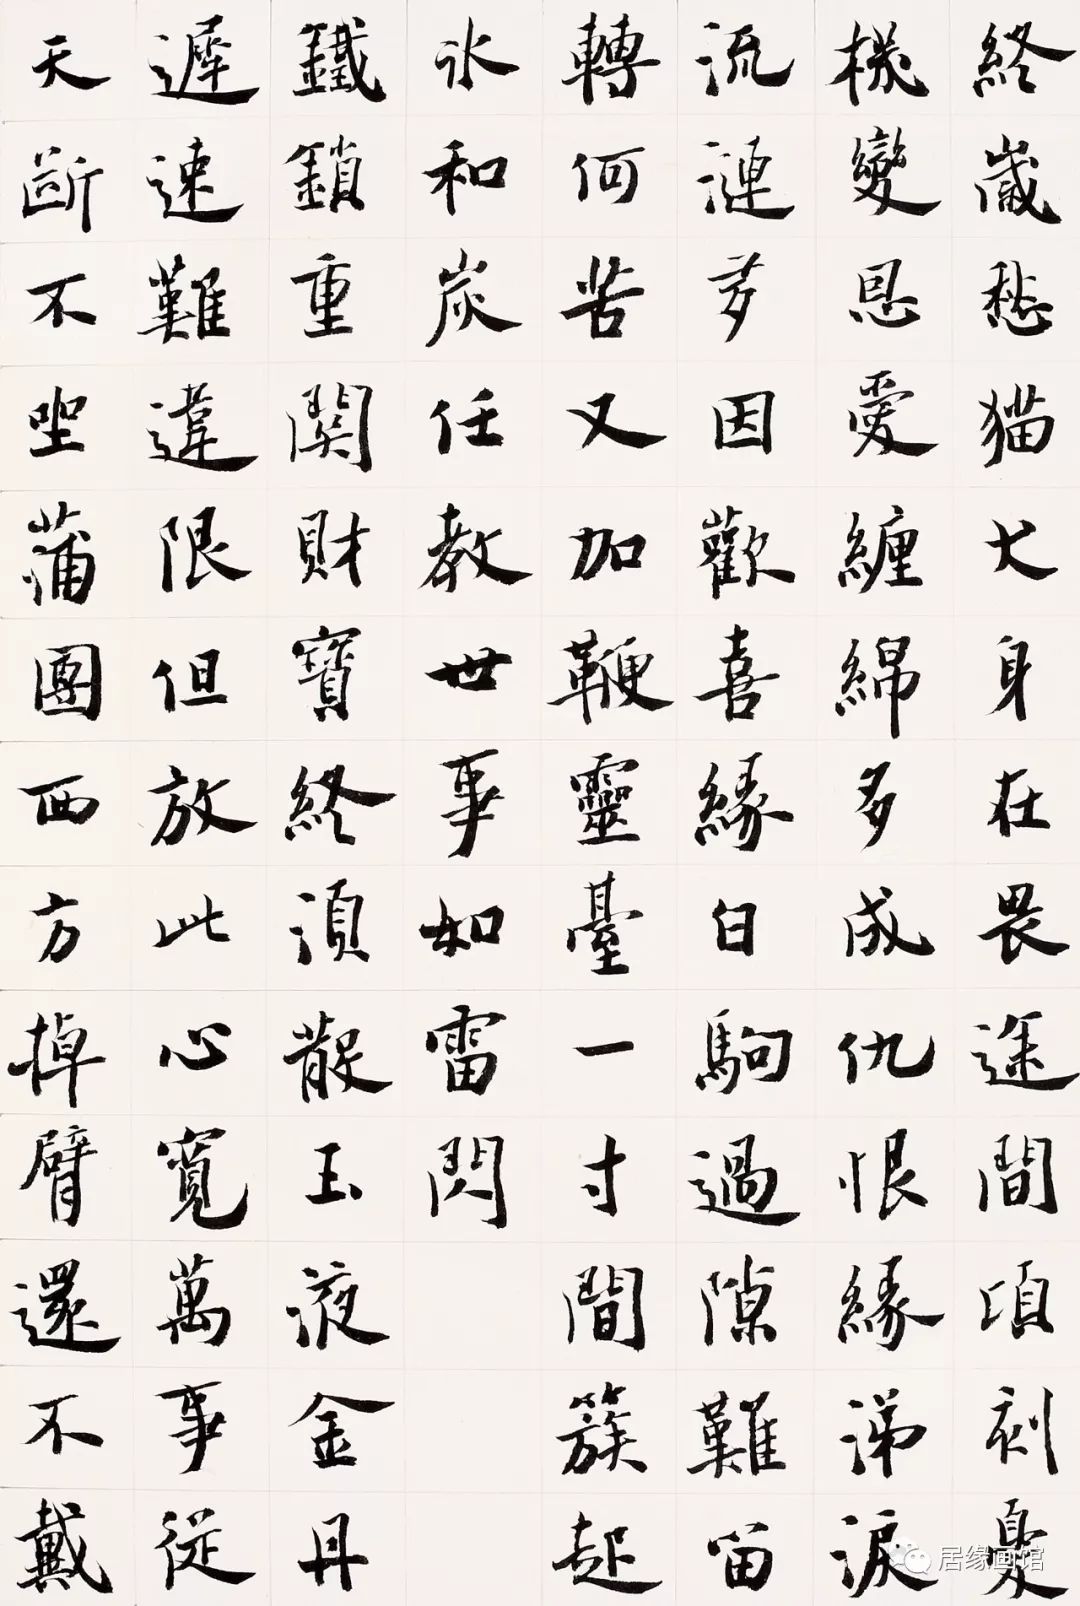 終歲愁猫犬身在畏途間頃刻憂
機變恩愛纏綿多成仇恨緣涕淚
流漣多因歡喜緣白駒過隙難留
轉何苦又加鞭靈臺一寸間簇起
冰和炭任教世事如雷閃
鐵鎖重關財寶終須散玉液金丹
遲速難違限但放此心寬萬事從
天斷不坐蒲團西方掉臂還不戴
居缘画馆